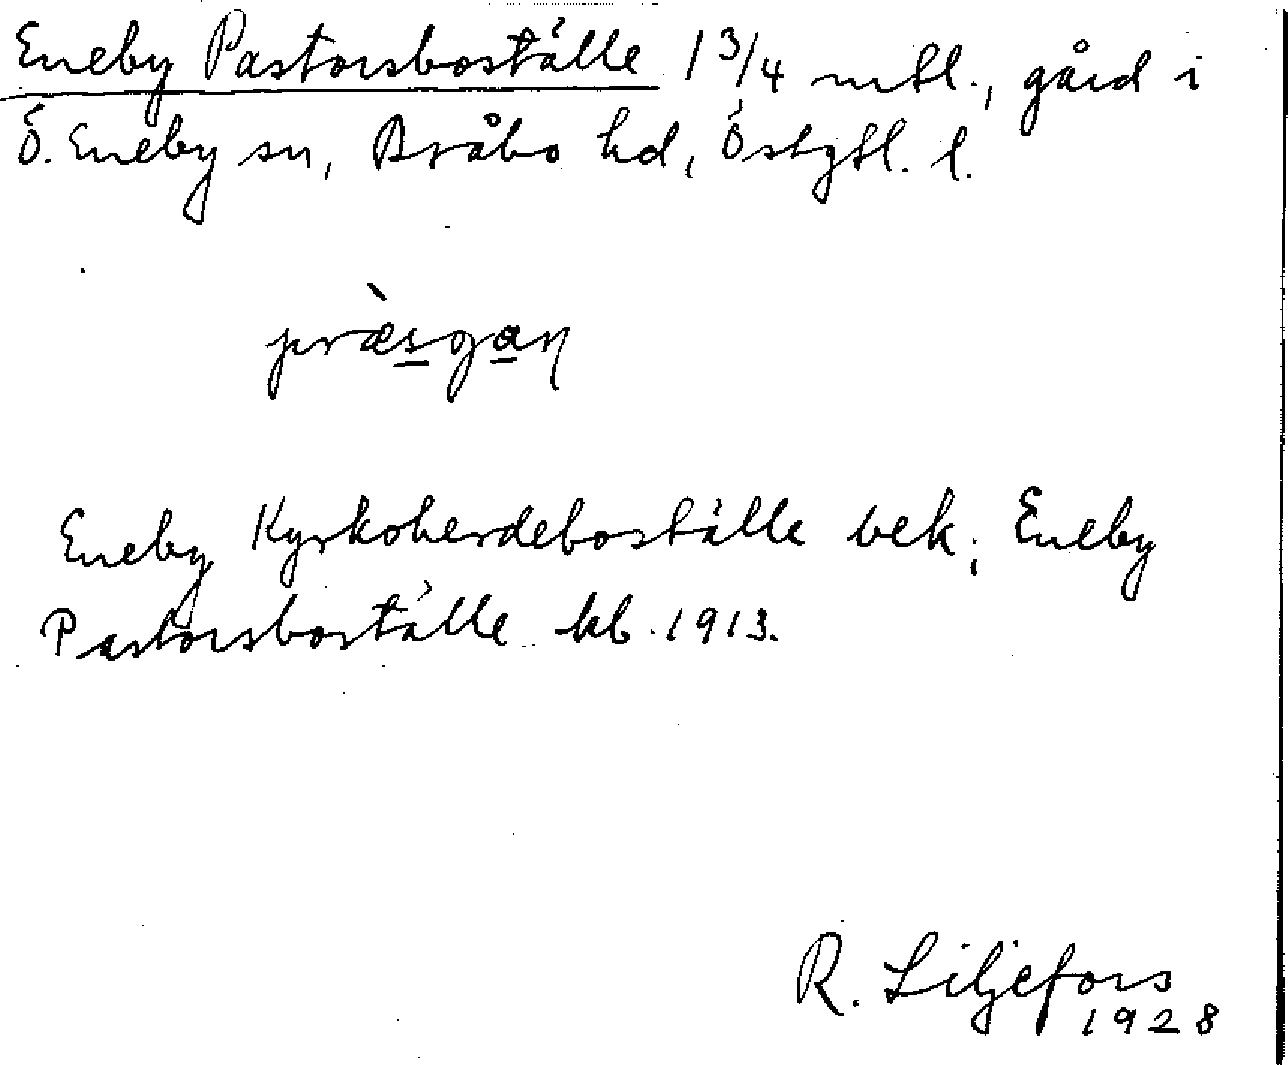 Eneby Pastorsboställe 1 3/4 mtl., gård i
Ö. Eneby sn, Bråbo hd, Östgtl. l.
præ̀sgaɳ
Eneby Kyrkoherdeboställe vek; Eneby
Pastorsboställe kb. 1913.
R. Liljefors
1928